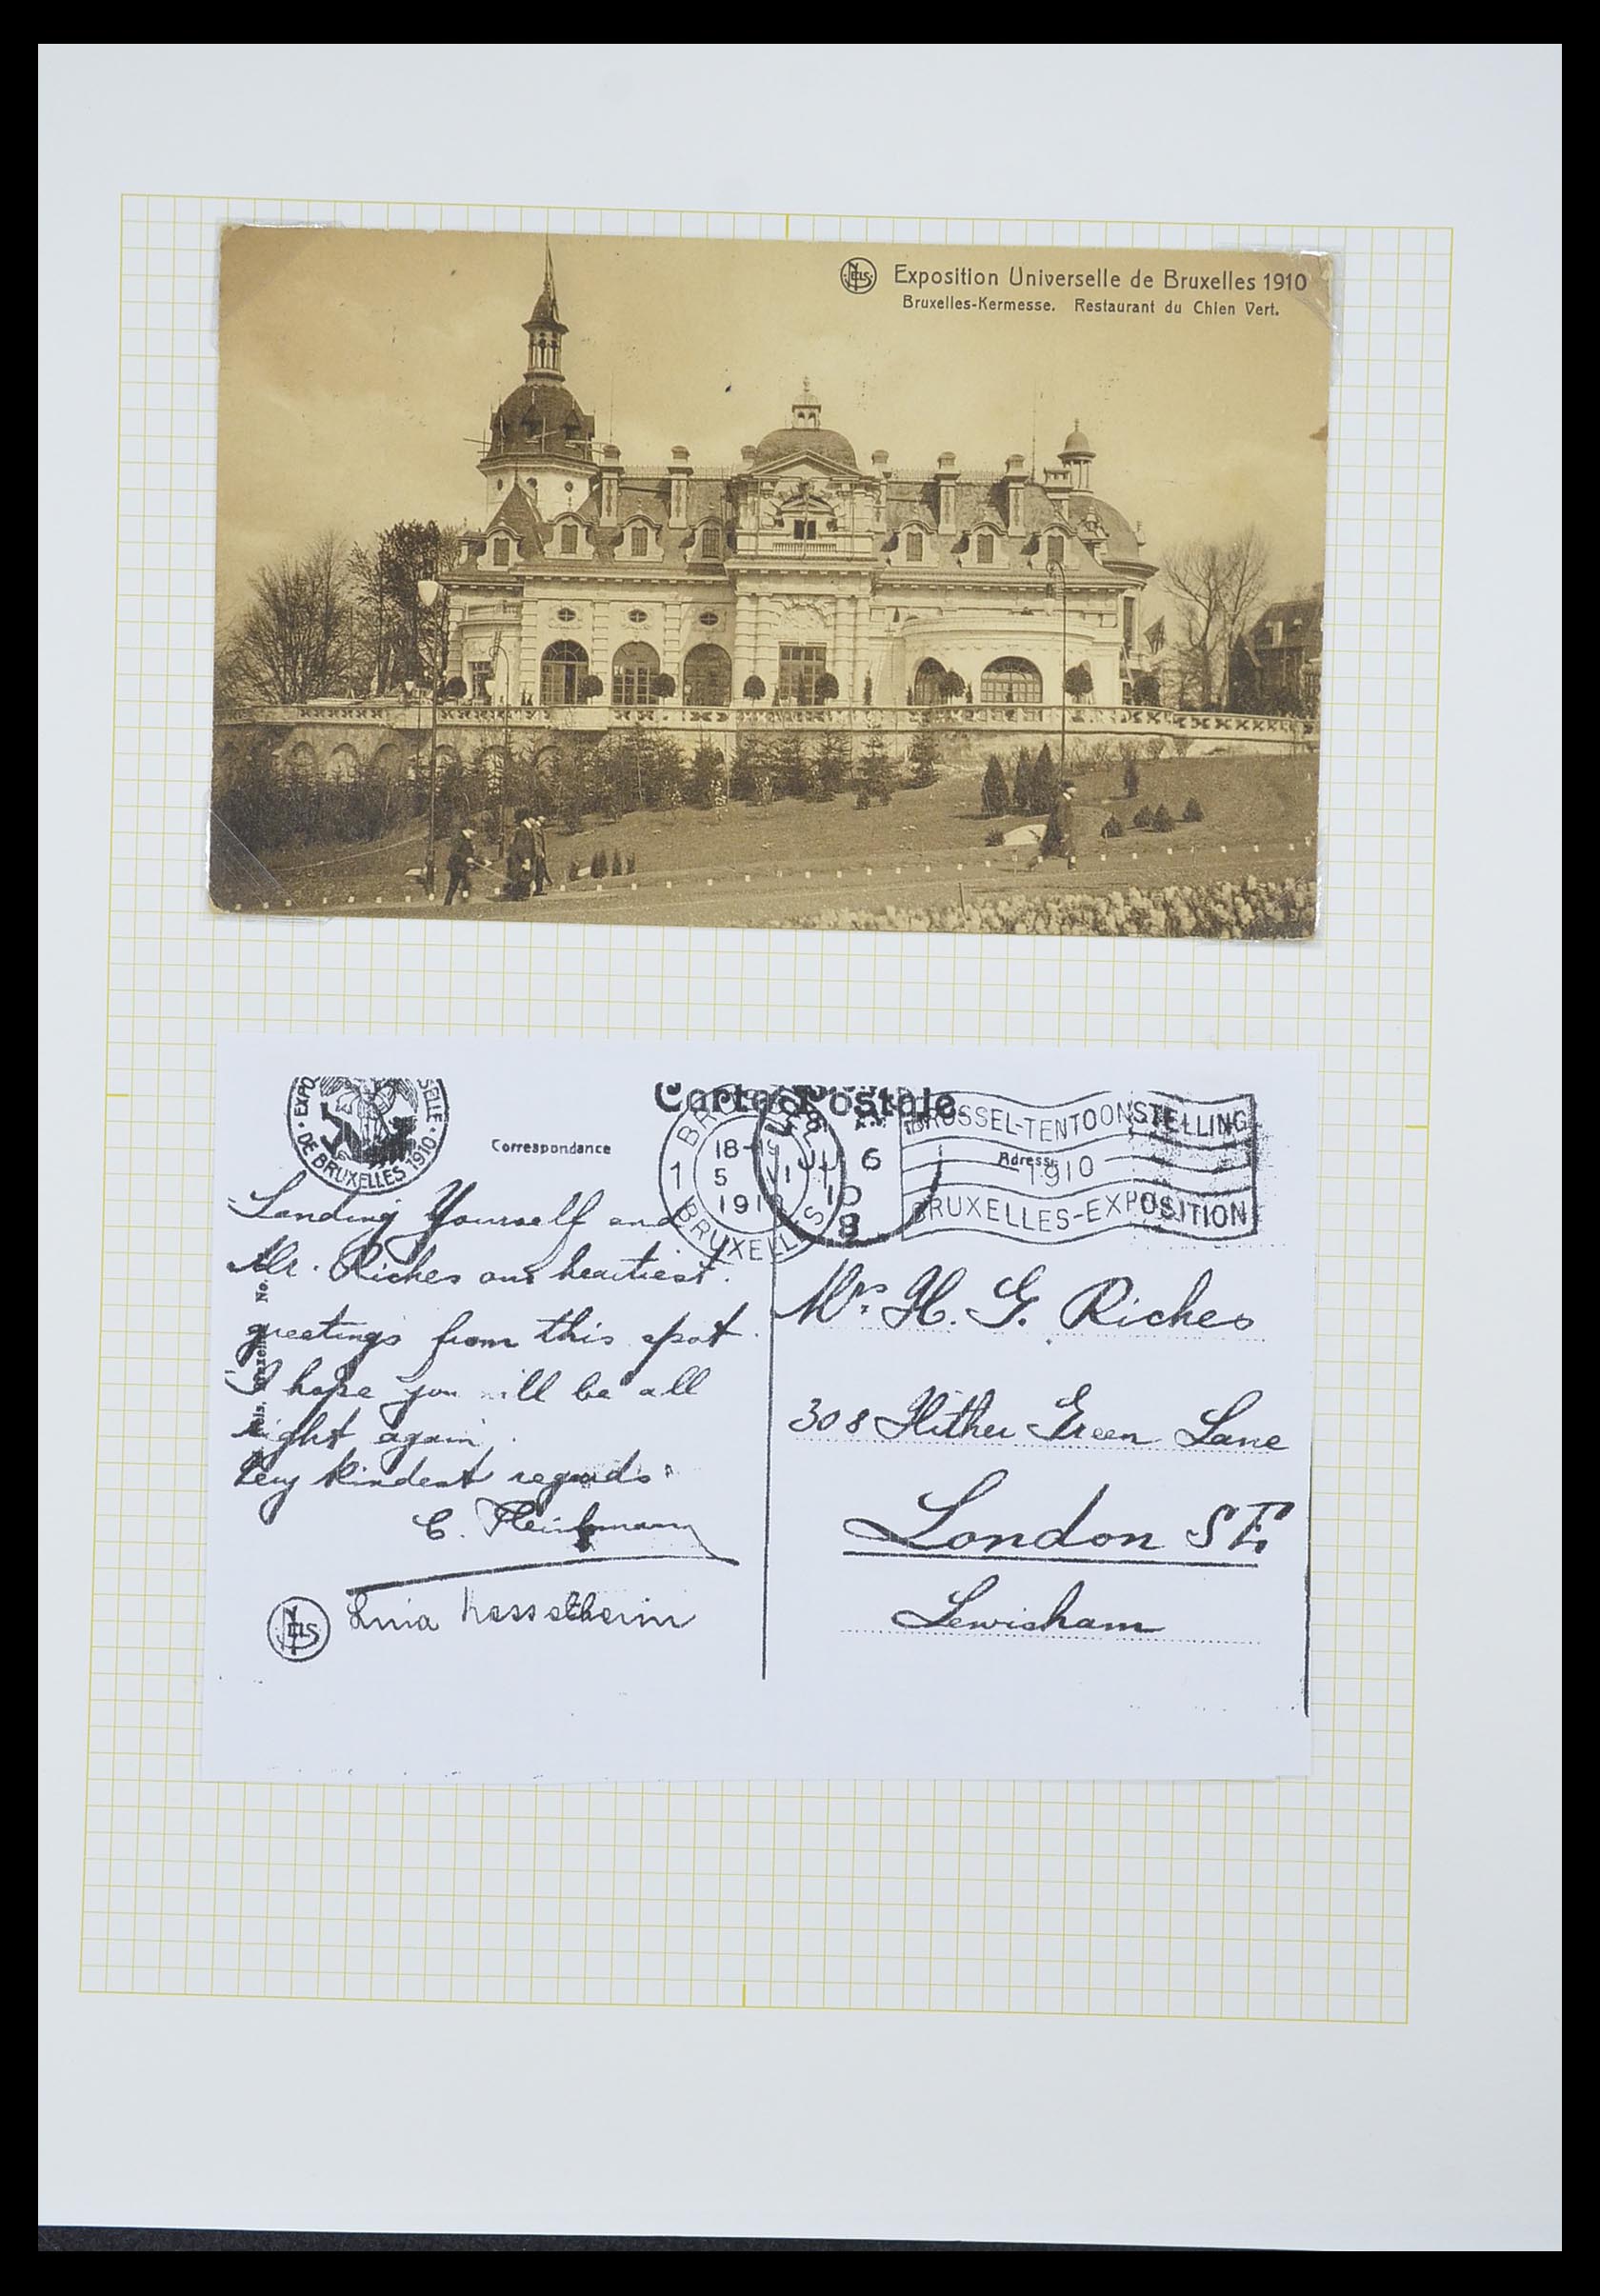 NELS
Exposition Universelle de Bruxelles 1910
Bruxelles-Kermesse. Restaurant du Chien Vert.
DE BRUXELLES 1910
Carte Postale
Correspondance
Adresse
1
18-
5
1910
BRUXELLES
JU 6
10
8
BRUSSEL-TENTOONSTELLING
1910
BRUXELLES-EXPOSITION
Sending Yourself and
Mr. Riches our heartiest
greetings from this spot.
I hope you will be all
right again.
Very kindest regards.
C.
NELS
No.
Mrs. H. G. Riches
308 Hither Green Lane
London S.E.
Lewisham